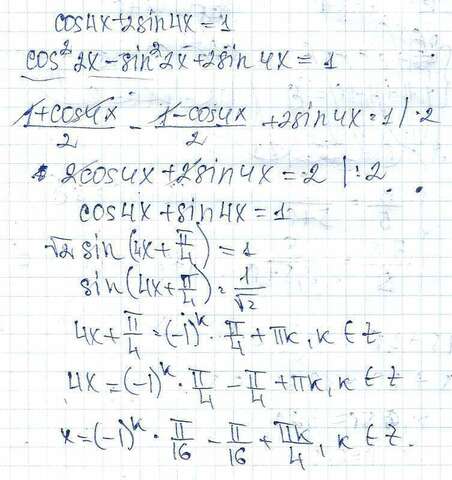 cos4x+2sin4x=1
cos² 2x-sin² 2x+2sin 4x=1
(1+cos4x)/2 - (1-cos4x)/2 +2sin4x=1 |·2
2cos4x+2sin4x=2 |:2
cos4x+sin4x=1
√2 sin(4x+π/4)=1
sin(4x+π/4)=1/√2
4x+π/4=(-1)^k · π/4+πk, k ∈ Z
4x=(-1)^k · π/4 - π/4 +πk, k ∈ Z
x=(-1)^k · π/16 - π/16 + πk/4, k ∈ Z.